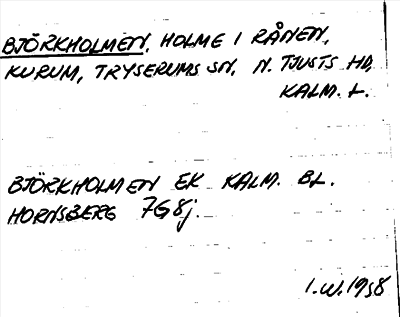 BJÖRKHOLMEN, HOLME I RÅNEN,
KURUM, TRYSERUMS SN, N. TJUSTS HD,
KALM. L.
BJÖRKHOLMEN EK KALM. BL.
HORNSBERG 7G8j.
I.W. 1958